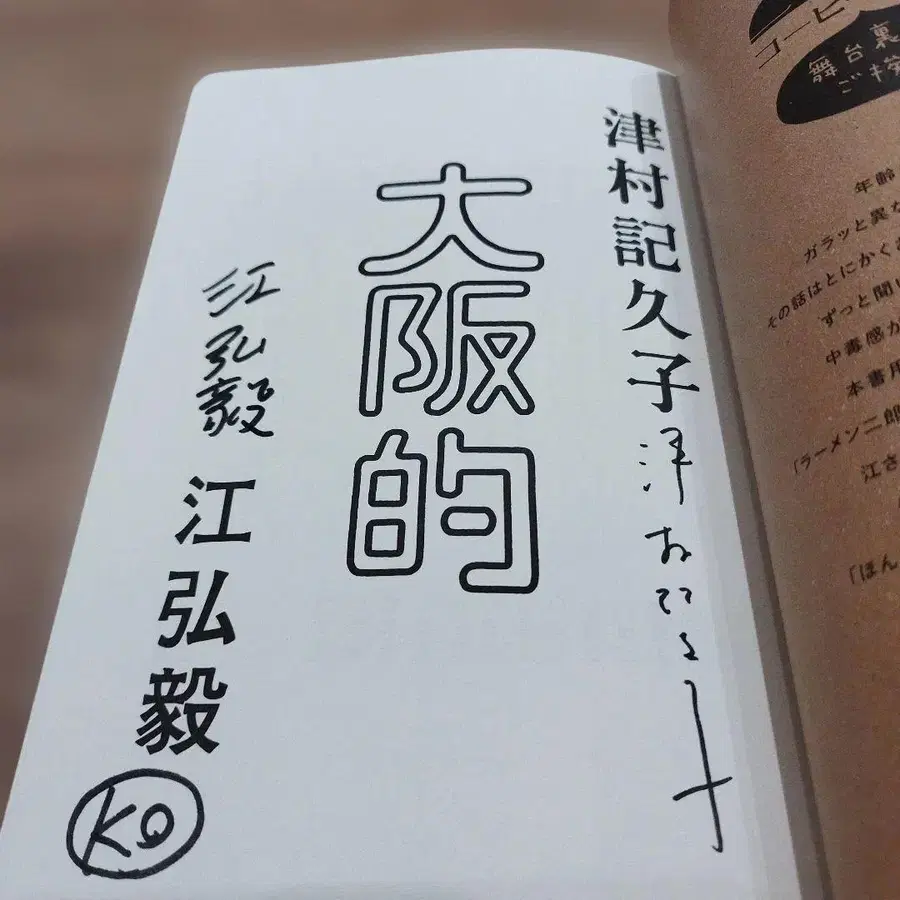 コーヒ
舞台裏
ご挨
年齢
ガラッと異な
その話はとにかく
ずっと聞い
中毒感が
本書用
(ラーメン二郎
江さ
「ほん
津村記久子
大阪的
江弘毅
江弘毅
KO